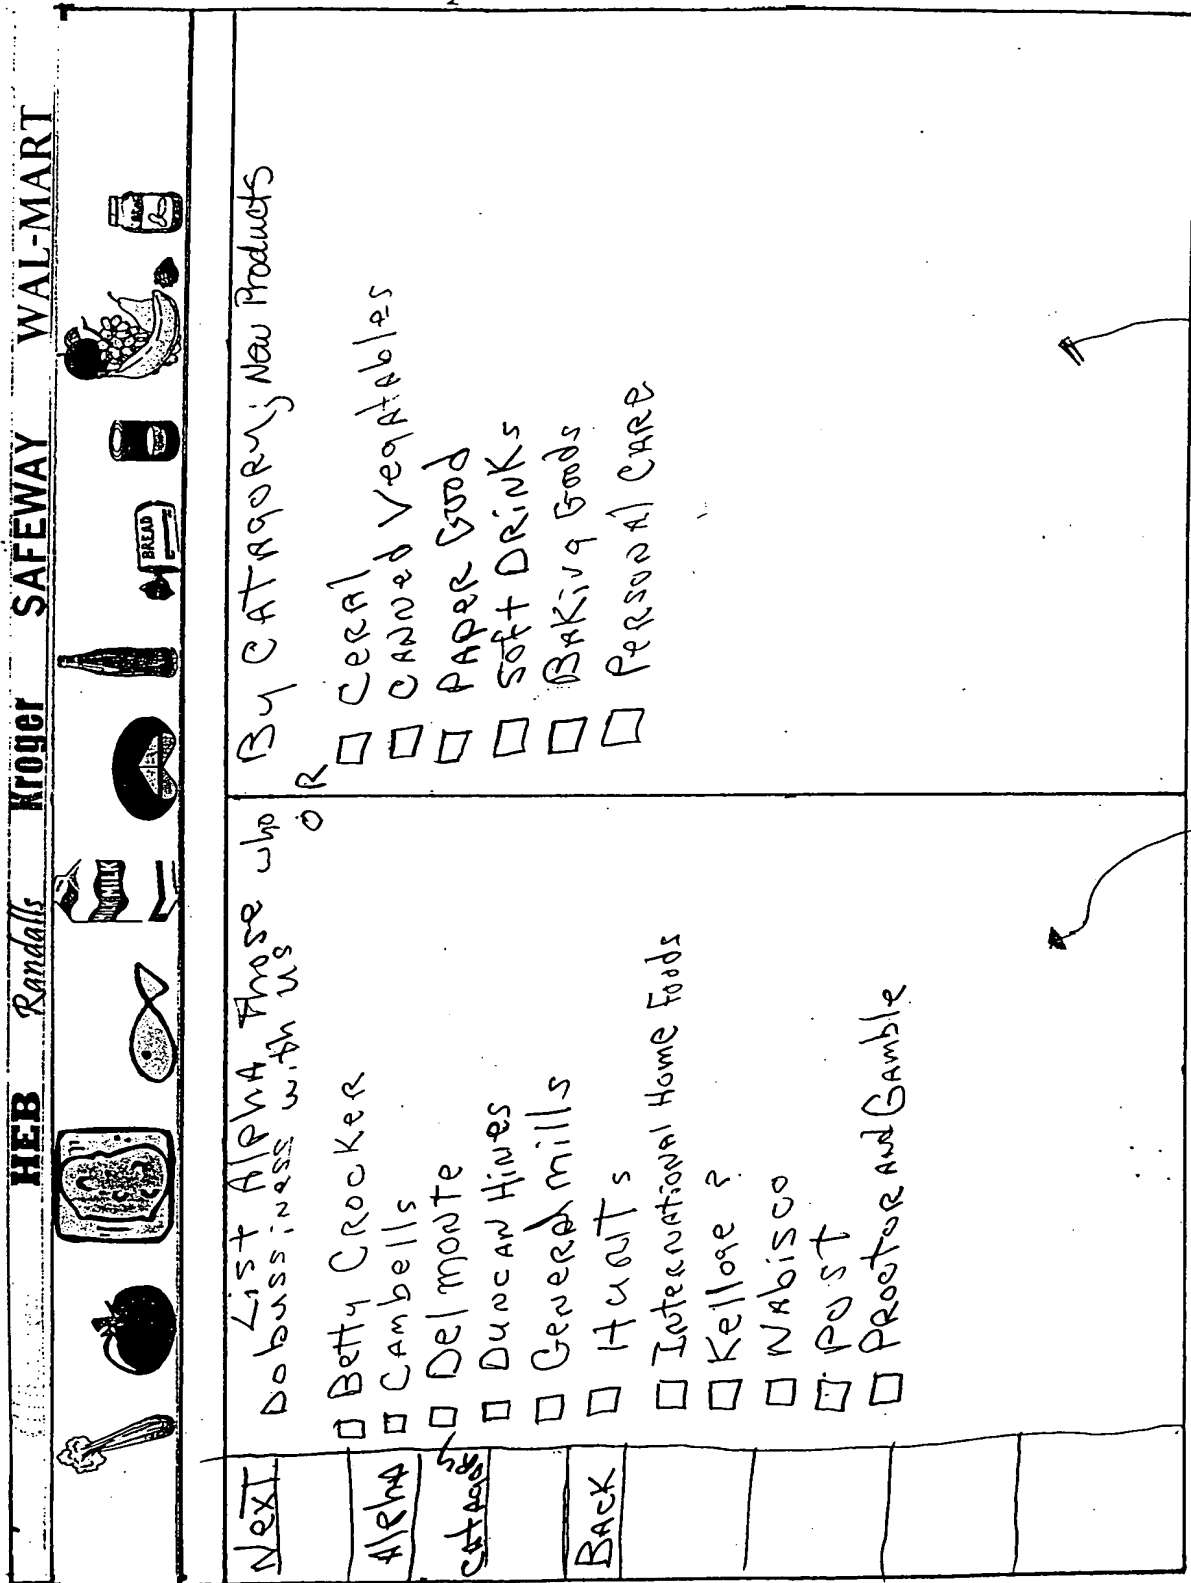 HEB Randalls Kroger SAFEWAY WAL-MART
MILK
BREAD
Next
Alpha
CATAGORY
BACK
List Alpha Those who
Do bussiness with us
□ Betty CROCKER
□ CAmbells
□ Del monte
□ DUNCAN HINES
□ General mills
□ HUNTs
□ International Home Foods
□ Kelloge ?
□ NAbisco
□ POST
□ PROCTOR AND GAmble
OR
By CATAGORY; New Products
□ CERAl
□ CANNED VegAtAbles
□ PAPER Good
□ SOft DRINKs
□ BAKINg Goods
□ PERSONAl CARE